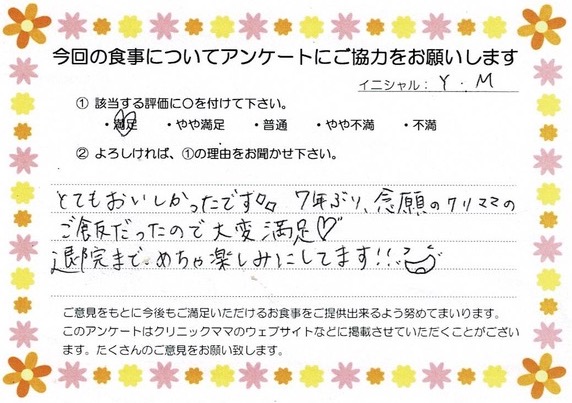 今回の食事についてアンケートにご協力をお願いします
イニシャル: Y. M
① 該当する評価に○を付けて下さい。
・満足 ・やや満足 ・普通 ・やや不満 ・不満
② よろしければ、①の理由をお聞かせ下さい。
とてもおいしかったです。。 7年ぶり、念願のクリママの
ご飯だったので大変満足♡
退院まで、めちゃ楽しみにしてます!!
ご意見をもとに今後もご満足いただけるお食事をご提供出来るよう努めてまいります。
このアンケートはクリニックママのウェブサイトなどに掲載させていただくことがござい
ます。たくさんのご意見をお願い致します。